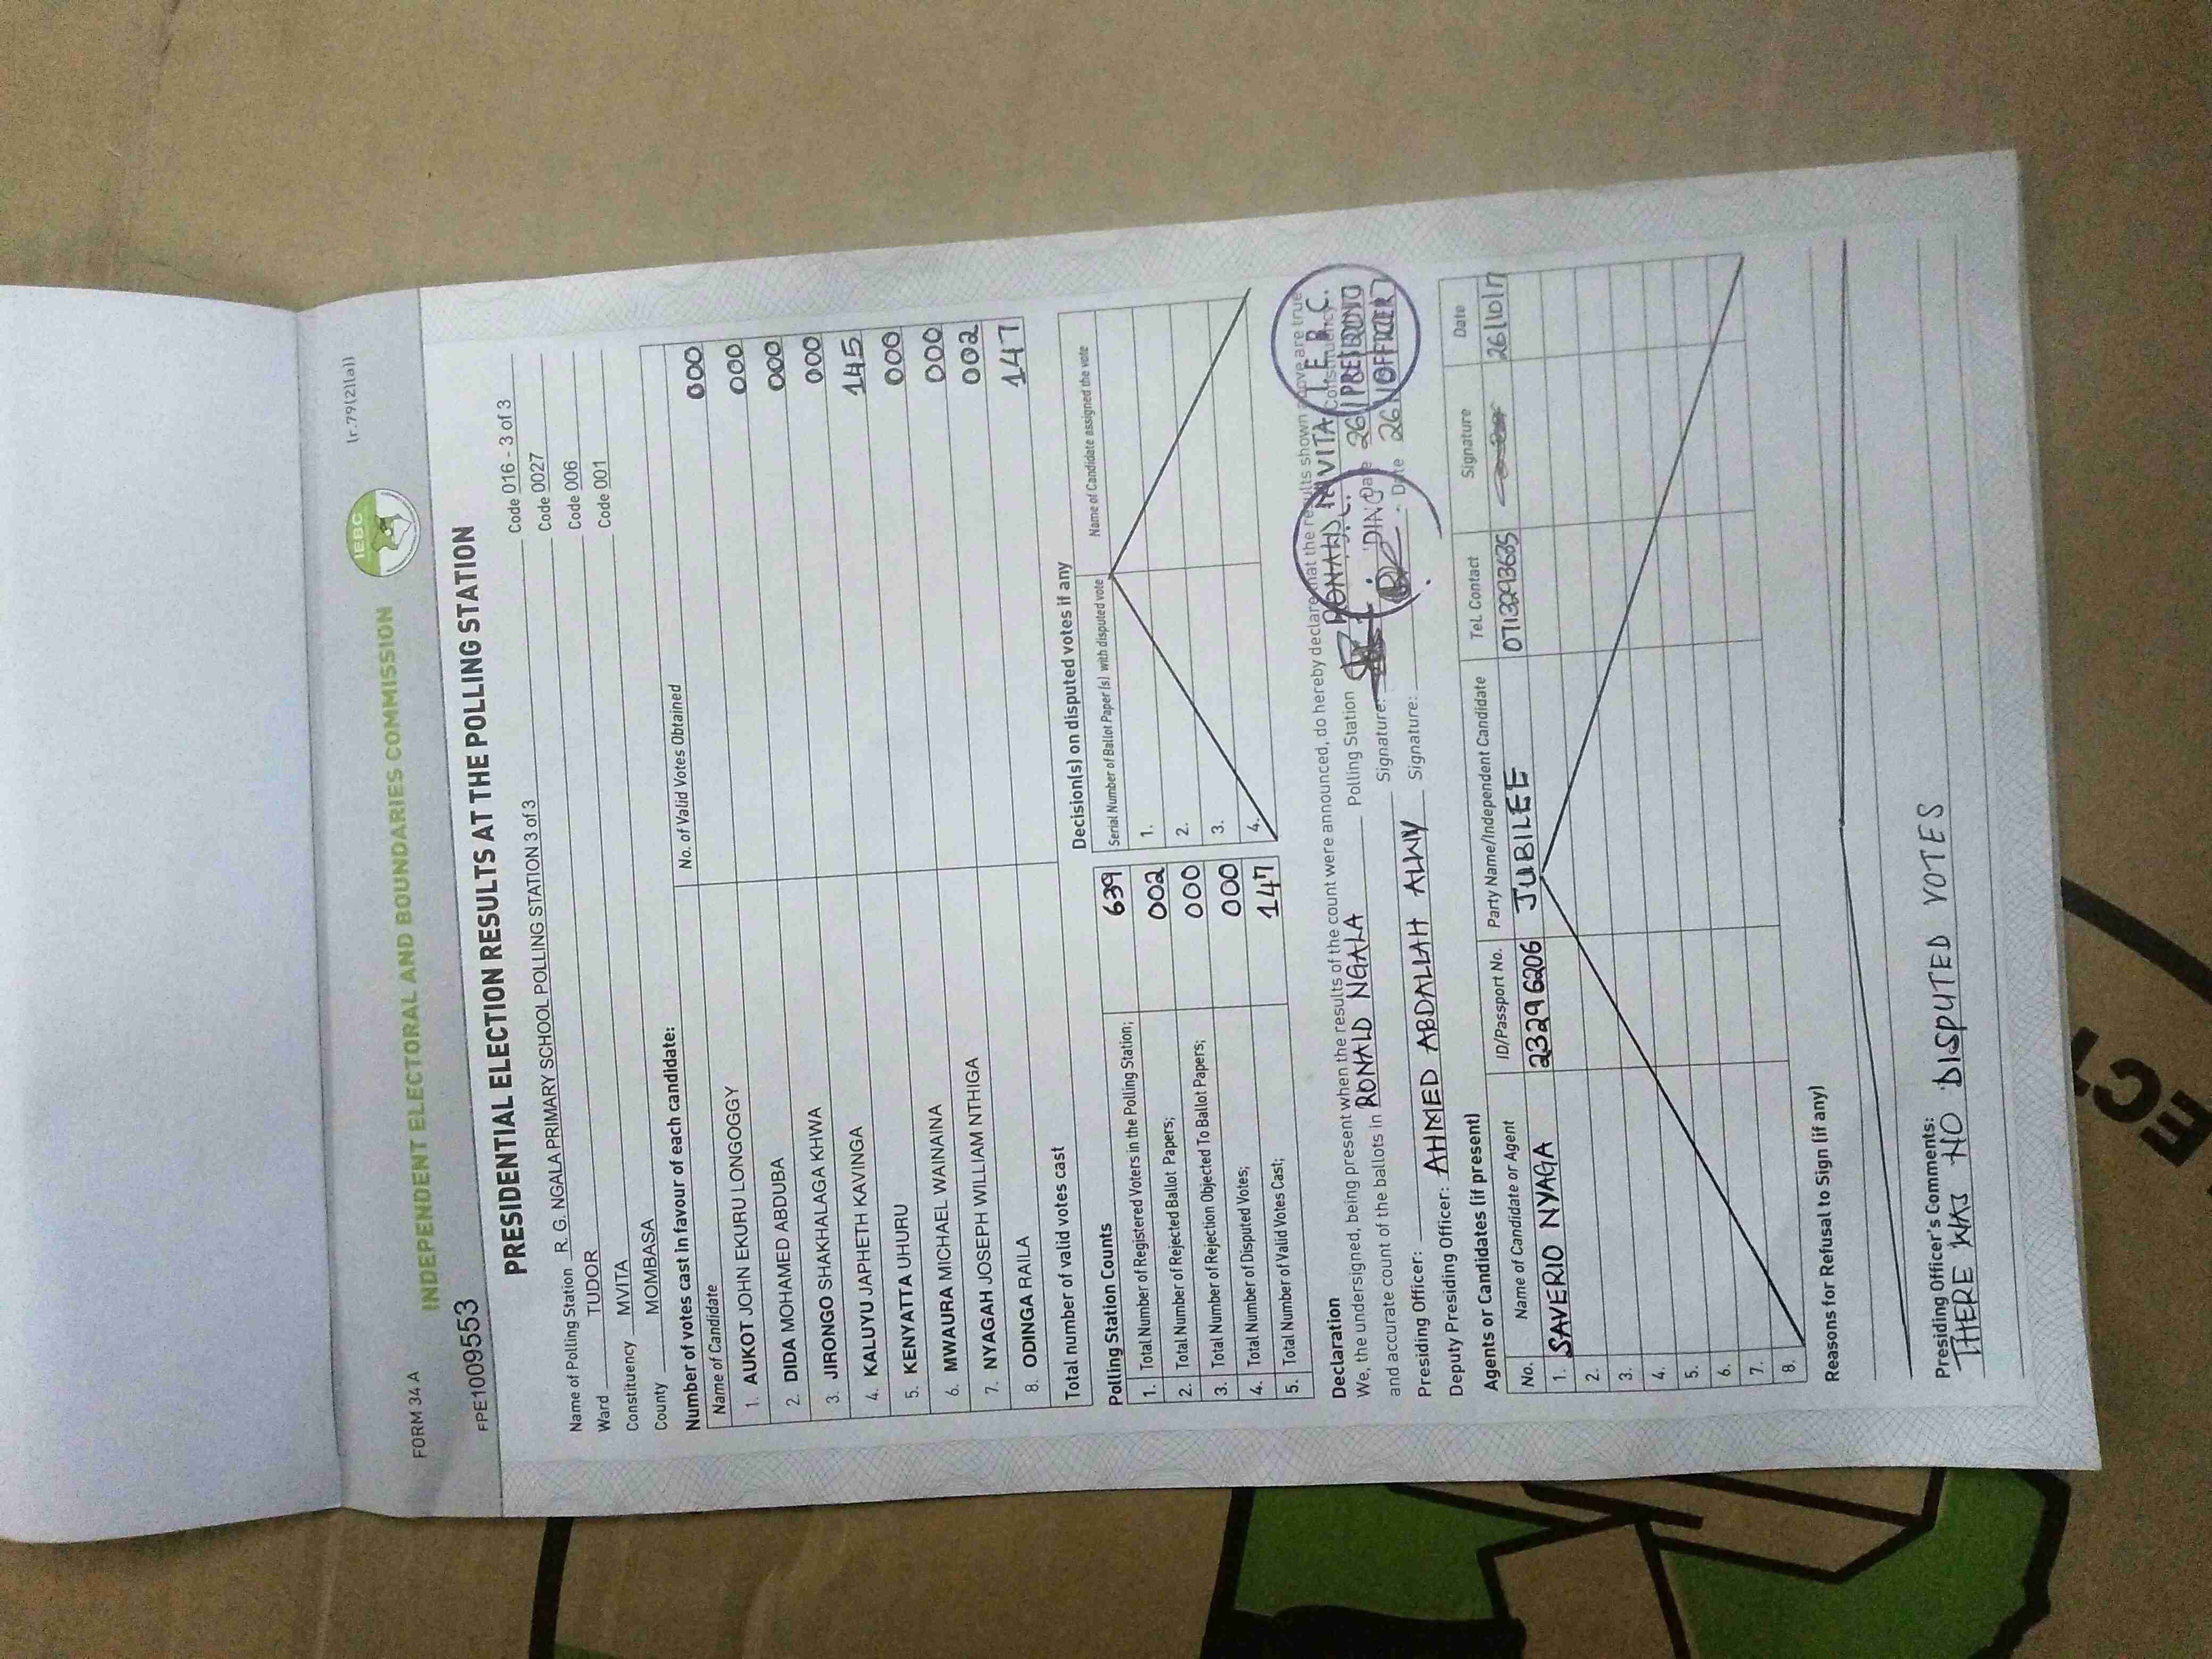 FORM 34 A
(r.79(2)(a))
IEBC
INDEPENDENT ELECTORAL AND BOUNDARIES COMMISSION
FPE1009553
PRESIDENTIAL ELECTION RESULTS AT THE POLLING STATION
Name of Polling Station R. G. NGALA PRIMARY SCHOOL POLLING STATION 3 of 3 Code 016 - 3 of 3
Ward TUDOR Code 0027
Constituency MVITA Code 006
County MOMBASA Code 001
Number of votes cast in favour of each candidate:
Name of Candidate No. of Valid Votes Obtained
1. AUKOT JOHN EKURU LONGOGGY 000
2. DIDA MOHAMED ABDUBA 000
3. JIRONGO SHAKHALAGA KHWA 000
4. KALUYU JAPHETH KAVINGA 000
5. KENYATTA UHURU 145
6. MWAURA MICHAEL WAINAINA 000
7. NYAGAH JOSEPH WILLIAM NTHIGA 000
8. ODINGA RAILA 002
Total number of valid votes cast 147
Polling Station Counts
1. Total Number of Registered Voters in the Polling Station; 639
2. Total Number of Rejected Ballot Papers; 002
3. Total Number of Rejection Objected To Ballot Papers; 000
4. Total Number of Disputed Votes; 000
5. Total Number of Valid Votes Cast; 147
Decision(s) on disputed votes if any
Serial Number of Ballot Paper(s) with disputed vote Name of Candidate assigned the vote
1.
2.
3.
4.
Declaration
We, the undersigned, being present when the results of the count were announced, do hereby declare that the results shown above are true
and accurate count of the ballots in RONALD NGALA Polling Station MVITA Constituency.
Presiding Officer: Signature: Date 26
Deputy Presiding Officer: AHMED ABDALLAH ALWY Signature: Date 26
I.E.B.C.
PRESIDING
OFFICER
Agents or Candidates (if present)
No. Name of Candidate or Agent ID/Passport No. Party Name/Independent Candidate Tel. Contact Signature Date
1. SAVERIO NYAGA 23296206 JUBILEE 0713293635 26/10/17
2.
3.
4.
5.
6.
7.
8.
Reasons for Refusal to Sign (if any)
Presiding Officer's Comments:
THERE WAS NO DISPUTED VOTES
ECT